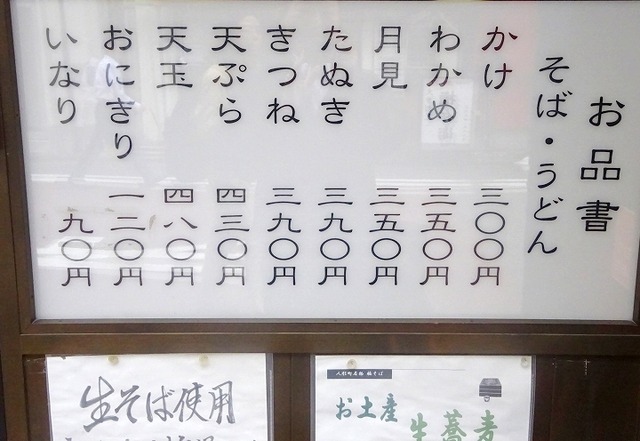 お品書
そば・うどん
かけ 三〇〇円
わかめ 三五〇円
月見 三五〇円
たぬき 三九〇円
きつね 三九〇円
天ぷら 四三〇円
天玉 四八〇円
おにぎり 一二〇円
いなり 九〇円
生そば使用
お土産
生蕎麦